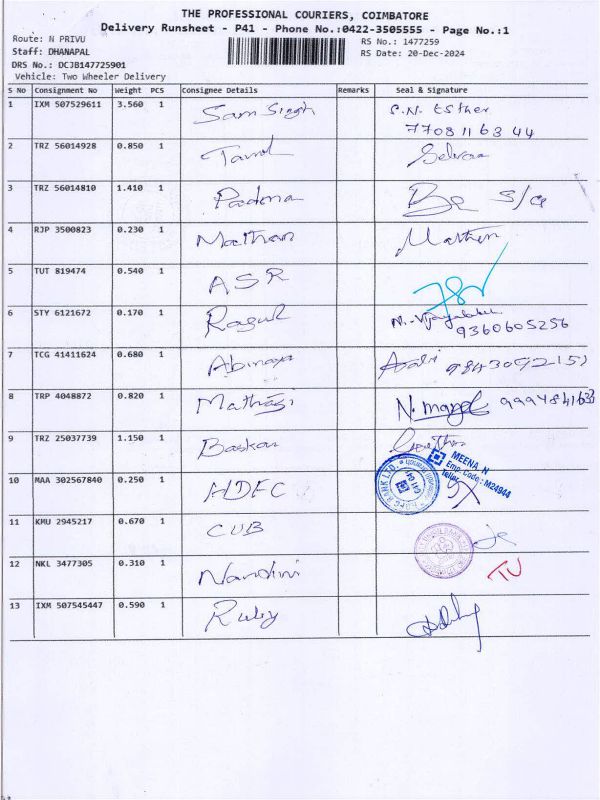 THE PROFESSIONAL COURIERS, COIMBATORE
Delivery Runsheet - P41 - Phone No.:0422-3505555 - Page No.:1
Route: N PRIVU
RS No.: 1477259
Staff: DHANAPAL
RS Date: 20-Dec-2024
DRS No.: DCJB147725901
Vehicle: Two Wheeler Delivery
S No Consignment No Weight PCS Consignee Details Remarks Seal & Signature
1 IXM 507529611 3.560 1 Sam Singh S.N. Esther
7708116344
2 TRZ 56014928 0.850 1 Tamil
3 TRZ 56014810 1.410 1 Padma S/O
4 RJP 3500823 0.230 1 Maithan
5 TUT 819474 0.540 1 ASR
6 STY 6121672 0.170 1 Ragul
9360605256
7 TCG 41411624 0.680 1 Abinaya 9843092151
8 TRP 4048872 0.820 1 Mathagi
9 TRZ 25037739 1.150 1 Baskar
MEENA. N
Emp. Code : M24944
Teller
10 MAA 302567840 0.250 1 HDFC
11 KMU 2945217 0.670 1 CUB
12 NKL 3477305 0.310 1 Nandini
13 IXM 507545447 0.590 1 Ruby